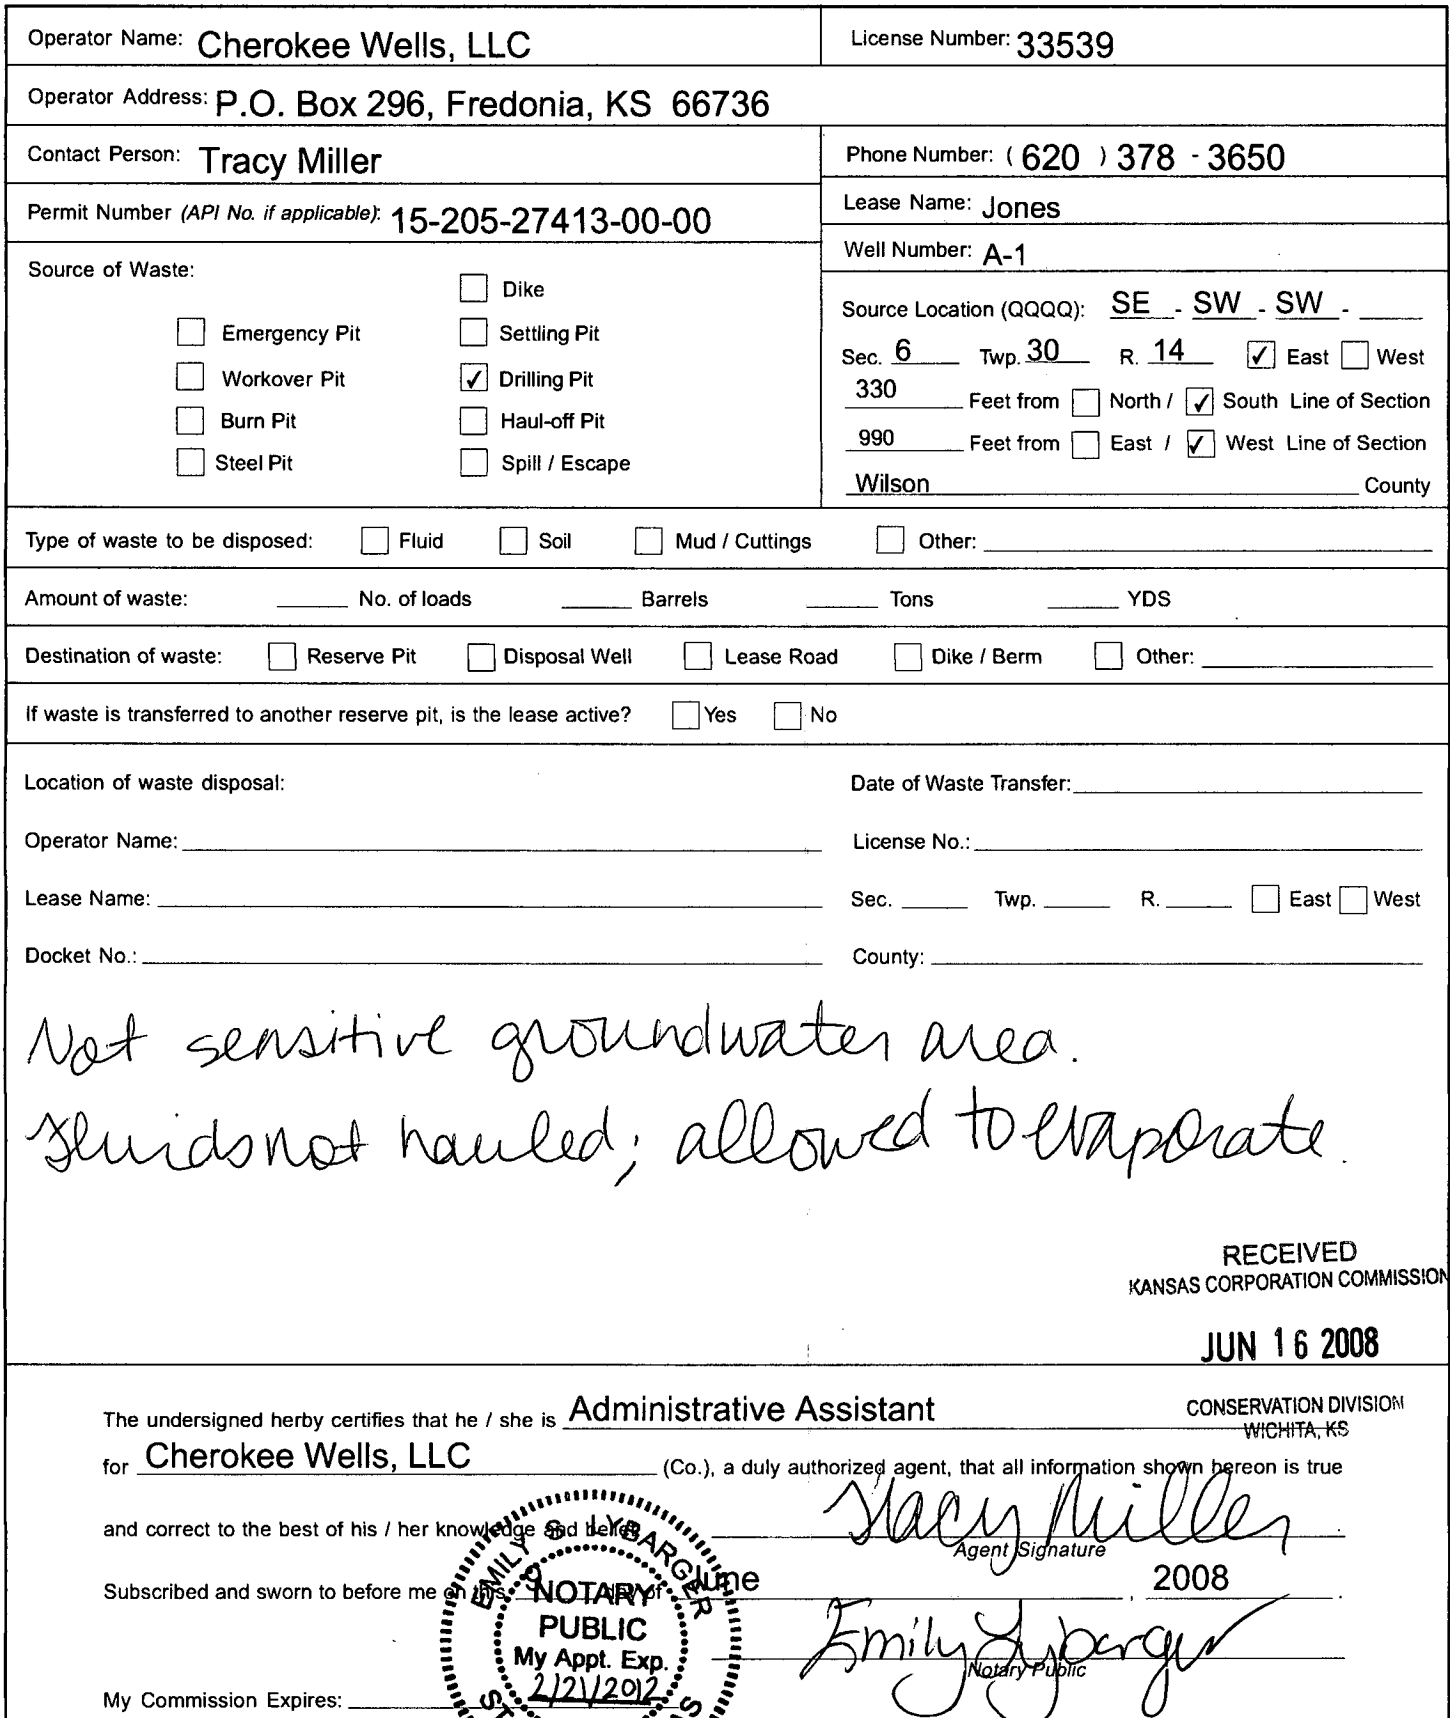 Operator Name: Cherokee Wells, LLC
License Number: 33539
Operator Address: P.O. Box 296, Fredonia, KS 66736
Contact Person: Tracy Miller
Phone Number: ( 620 ) 378 - 3650
Permit Number (API No. if applicable): 15-205-27413-00-00
Lease Name: Jones
Well Number: A-1
Source of Waste:
Dike
Emergency Pit
Settling Pit
Workover Pit
✓ Drilling Pit
Burn Pit
Haul-off Pit
Steel Pit
Spill / Escape
Source Location (QQQQ): SE - SW - SW -
Sec. 6 Twp. 30 R. 14 ✓ East West
330 Feet from North / ✓ South Line of Section
990 Feet from East / ✓ West Line of Section
Wilson County
Type of waste to be disposed: Fluid Soil Mud / Cuttings Other:
Amount of waste: No. of loads Barrels Tons YDS
Destination of waste: Reserve Pit Disposal Well Lease Road Dike / Berm Other:
If waste is transferred to another reserve pit, is the lease active? Yes No
Location of waste disposal: Date of Waste Transfer:
Operator Name: License No.:
Lease Name: Sec. Twp. R. East West
Docket No.: County:
Not sensitive groundwater area.
Fluids not hauled; allowed to evaporate.
RECEIVED
KANSAS CORPORATION COMMISSION
JUN 16 2008
CONSERVATION DIVISION
WICHITA, KS
The undersigned herby certifies that he / she is Administrative Assistant
for Cherokee Wells, LLC (Co.), a duly authorized agent, that all information shown hereon is true
and correct to the best of his / her knowledge and belief. Tracy Miller
Agent Signature
Subscribed and sworn to before me on this 9 day of June , 2008
Emily Lybarger
Notary Public
My Commission Expires:
EMILY S. LYBARGER
NOTARY
PUBLIC
My Appt. Exp.
2/21/2012